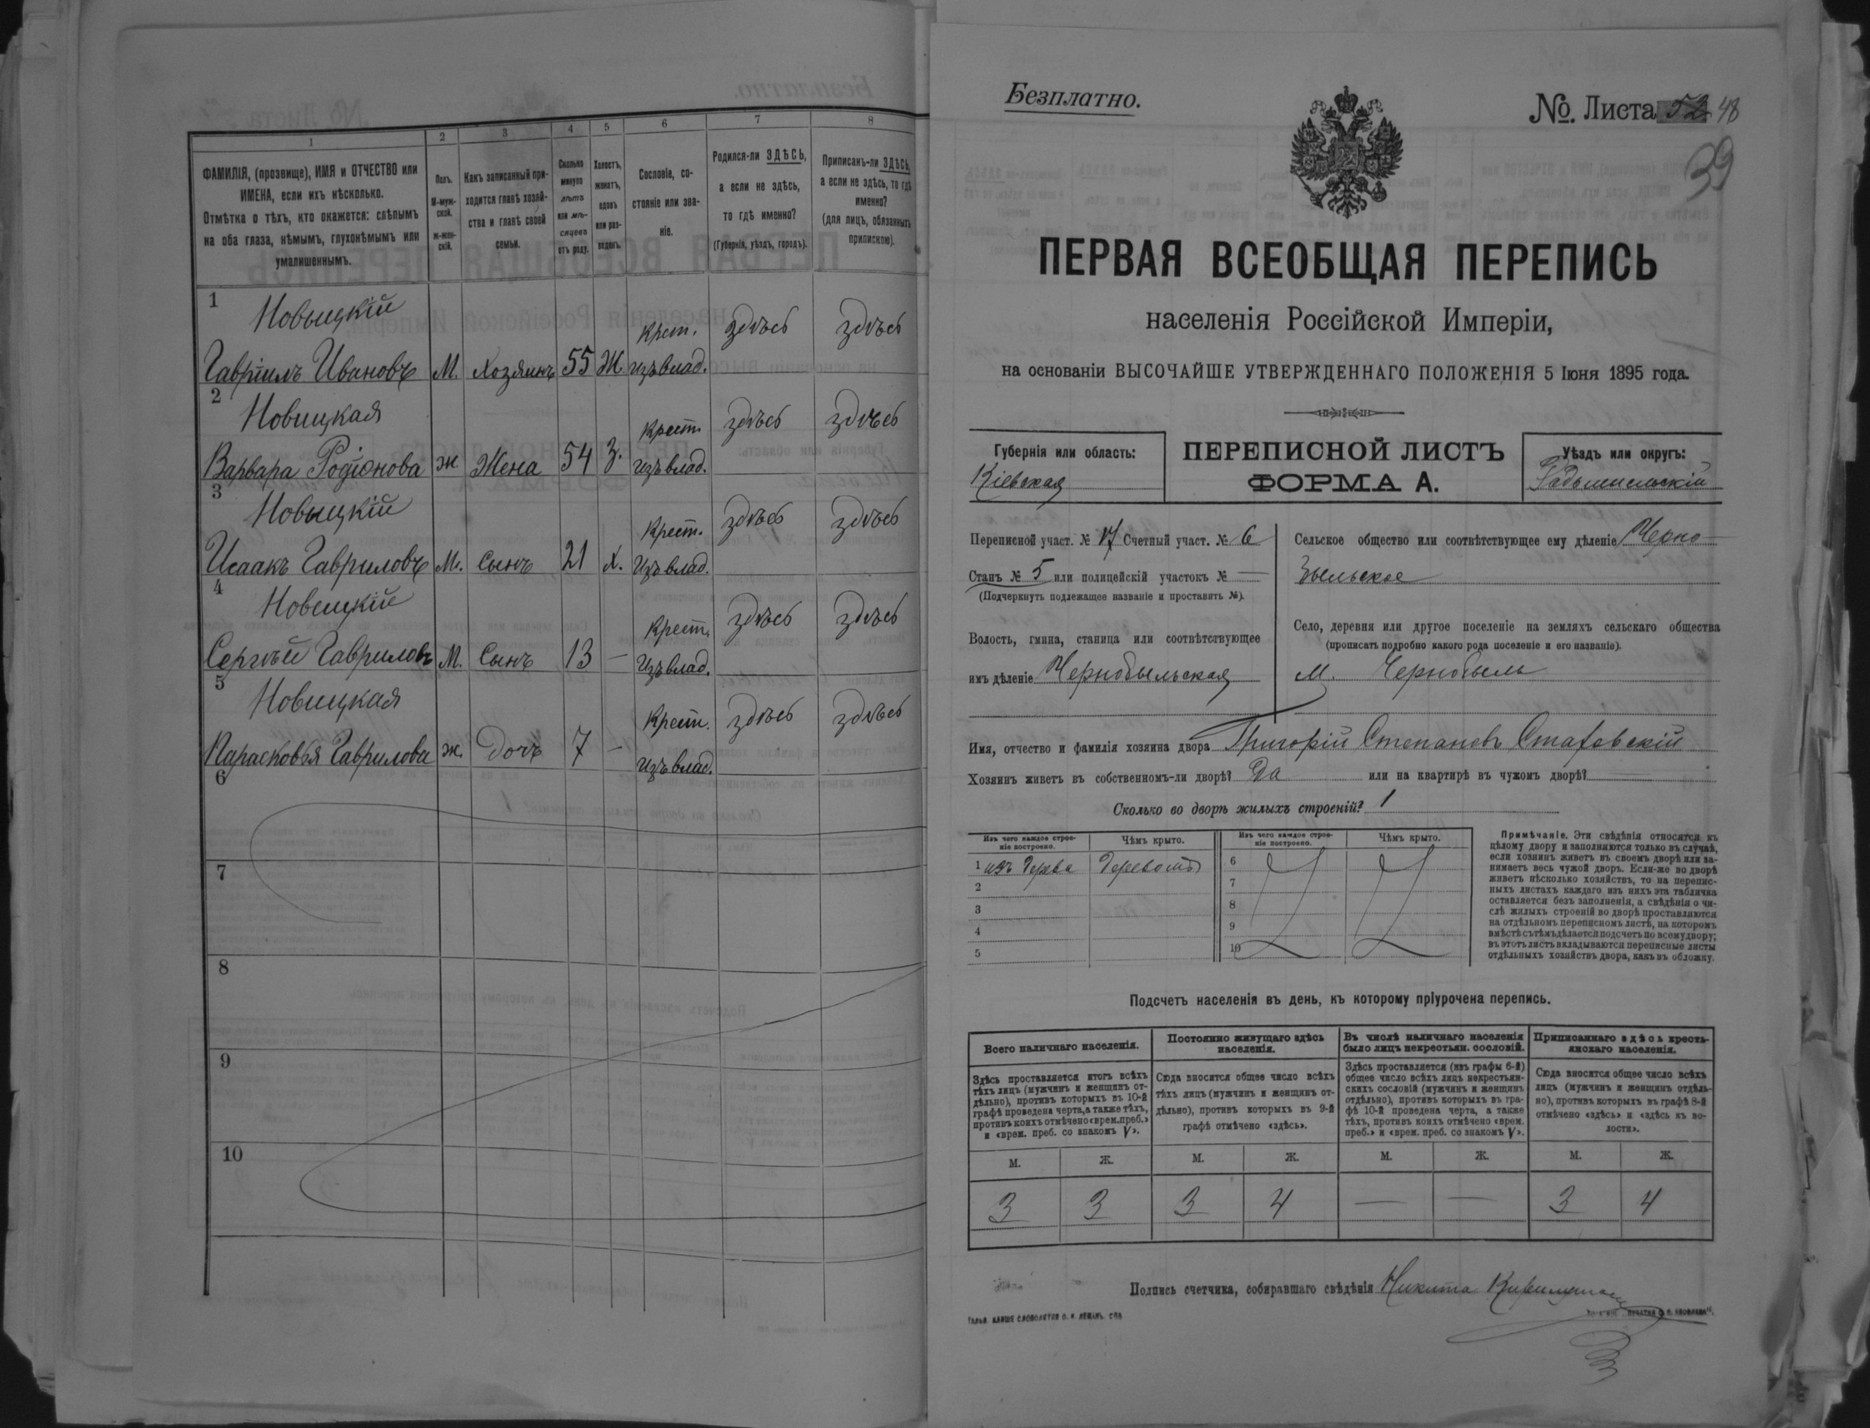 1 2 3 4 5 6 7 8
ФАМИЛІЯ, (прозвище), ИМЯ и ОТЧЕСТВО или
ИМЕНА, если ихъ нѣсколько.
Отмѣтка о тѣхъ, кто окажется: слѣпымъ
на оба глаза, нѣмымъ, глухонѣмымъ или
умалишеннымъ.
Полъ.
М-муж-
ской.
Ж-жен-
скій.
Какъ записанный при-
ходится главѣ хозяй-
ства и главѣ своей
семьи.
Сколько
минуло
лѣтъ
или мѣ-
сяцевъ
отъ роду.
Холостъ,
женатъ,
вдовъ
или раз-
веденъ.
Сословіе, со-
стояніе или зва-
ніе.
Родился-ли ЗДѢСЬ,
а если не здѣсь,
то гдѣ именно?
(Губернія, уѣздъ, городъ).
Приписанъ-ли ЗДѢСЬ,
а если не здѣсь, то гдѣ
именно?
(для лицъ, обязанныхъ
припискою).
1 Новыцкій
Гавріилъ Ивановъ М. Хозяинъ 55 Ж. Крест. изъ влад. здѣсь здѣсь
2 Новицкая
Варвара Родіонова ж Жена 54 З. Крест. изъ влад. здѣсь здѣсь
3 Новыцкій
Исаакъ Гавриловъ М. Сынъ 21 Х. Крест. изъ влад. здѣсь здѣсь
4 Новицкій
Сергѣй Гавриловъ М. Сынъ 13 — Крест. изъ влад. здѣсь здѣсь
5 Новицкая
Парасковія Гаврилова ж. Дочь 7 — Крест. изъ влад. здѣсь здѣсь
6
7
8
9
10
Безплатно.
№. Листа 52 48
39
ПЕРВАЯ ВСЕОБЩАЯ ПЕРЕПИСЬ
населенія Россійской Имперіи,
на основаніи ВЫСОЧАЙШЕ УТВЕРЖДЕННАГО ПОЛОЖЕНІЯ 5 Іюня 1895 года.
Губернія или область:
Кіевская
ПЕРЕПИСНОЙ ЛИСТЪ
ФОРМА А.
Уѣздъ или округъ:
Радомысльскій
Переписной участ. № 17 Счетный участ. № 6
Станъ № 5 или полицейскій участокъ № —
(Подчеркнуть подлежащее названіе и проставить №).
Волость, гмина, станица или соотвѣтствующее
имъ дѣленіе Чернобыльская
Сельское общество или соотвѣтствующее ему дѣленіе Черно-
быльское
Село, деревня или другое поселеніе на земляхъ сельскаго общества
(прописать подробно какого рода поселеніе и его названіе).
М. Чернобыль
Имя, отчество и фамилія хозяина двора Григорій Степановъ Стаховскій
Хозяинъ живетъ въ собственномъ-ли дворѣ? Да или на квартирѣ въ чужомъ дворѣ?
Сколько во дворѣ жилыхъ строеній? 1
Изъ чего каждое строе-
ніе построено.
Чѣмъ крыто.
Изъ чего каждое строе-
ніе построено.
Чѣмъ крыто.
1 изъ Дерева Деревомъ 6
2 7
3 8
4 9
5 10
Примѣчаніе. Эти свѣдѣнія относятся къ
цѣлому двору и заполняются только въ случаѣ,
если хозяинъ живетъ въ своемъ дворѣ или за-
нимаетъ весь чужой дворъ. Если-же во дворѣ
живетъ нѣсколько хозяйствъ, то на перепис-
ныхъ листахъ каждаго изъ нихъ эта табличка
оставляется безъ заполненія, а свѣдѣнія о чи-
слѣ жилыхъ строеній во дворѣ проставляются
на отдѣльномъ переписномъ листѣ, на которомъ
вмѣстѣ съ тѣмъ дѣлается подсчетъ по всему двору;
въ этотъ листъ вкладываются переписные листы
отдѣльныхъ хозяйствъ двора, какъ въ обложку.
Подсчетъ населенія въ день, къ которому пріурочена перепись.
Всего наличнаго населенія.
Здѣсь проставляется итогъ всѣхъ
тѣхъ лицъ (мужчинъ и женщинъ от-
дѣльно), противъ которыхъ въ 10-й
графѣ проведена черта, а также тѣхъ,
противъ коихъ отмѣчено «врем. преб.»
и «врем. преб. со знакомъ V».
Постоянно живущаго здѣсь
населенія.
Сюда вносится общее число всѣхъ
тѣхъ лицъ (мужчинъ и женщинъ от-
дѣльно), противъ которыхъ въ 9-й
графѣ отмѣчено «здѣсь».
Въ числѣ наличнаго населенія
было лицъ некрестьян. сословій.
Здѣсь проставляется (изъ графы 6-й)
общее число всѣхъ лицъ некрестьян-
скихъ сословій (мужчинъ и женщинъ
отдѣльно), противъ которыхъ въ гра-
фѣ 10-й проведена черта, а также
тѣхъ, противъ коихъ отмѣчено «врем.
преб.» и «врем. преб. со знакомъ V».
Приписаннаго здѣсь кресть-
янскаго населенія.
Сюда вносится общее число всѣхъ
лицъ (мужчинъ и женщинъ отдѣль-
но), противъ которыхъ въ графѣ 8-й
отмѣчено «здѣсь» и «здѣсь къ во-
лости».
М. Ж. М. Ж. М. Ж. М. Ж.
3 3 3 4 — — 3 4
Подпись счетчика, собиравшаго свѣдѣнія Никита